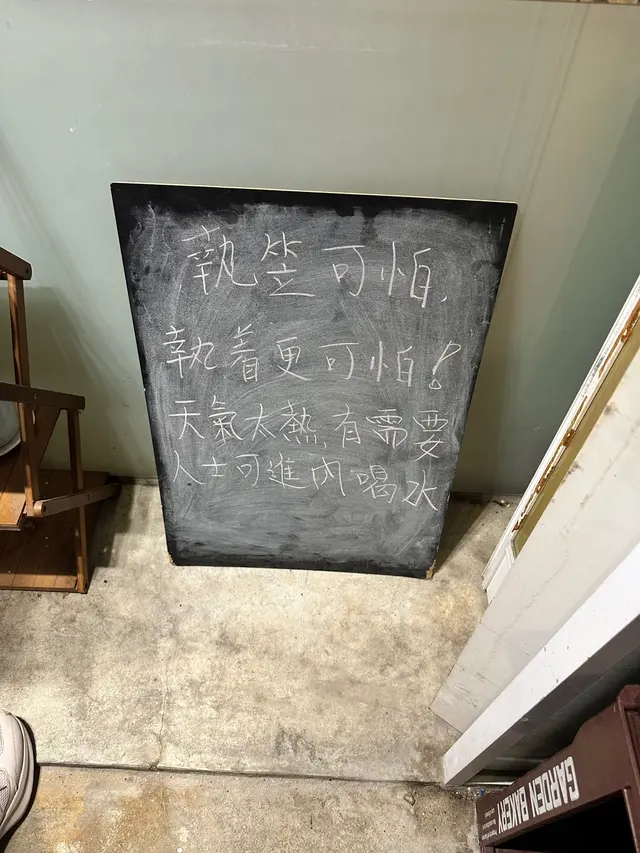 執笠可怕,
執着更可怕!
天氣太熱,有需要
人士可進內喝水
GARDEN BAKERY